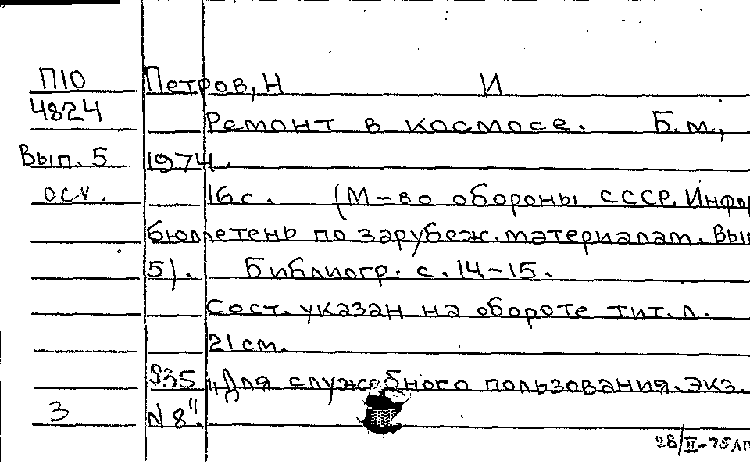 П10 Петров, Н И
4824
Ремонт в космосе. Б.м.,
Вып. 5 1974.
осч. 16 с. (М-во обороны СССР. Инфор
бюллетень по зарубеж. материалам. Вып
5). Библиогр. с. 14-15.
Сост. указан на обороте тит. л.
21 см.
935 "Для служебного пользования. Экз.
3 N 8".
28/II-75